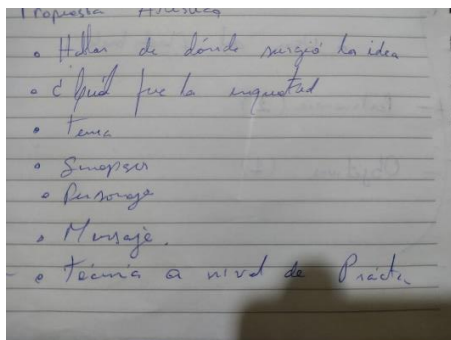 Propuesta Artística
• Hablar de dónde surgió la idea
• ¿Cuál fue la inquietud
• Tema
• Sinopsis
• Personaje
• Mensaje.
• a nivel de